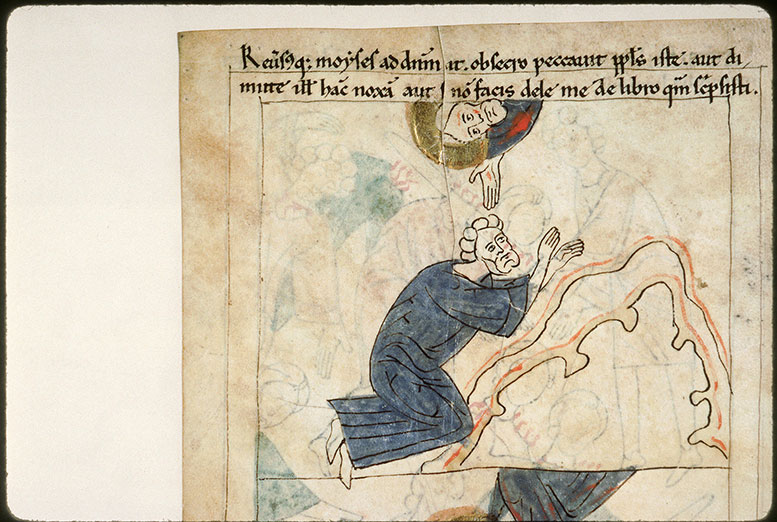 Reu͛sꝰq; moẏses ad dn̄m ait. obsecro peccauit pp̄ls iste. aut di
mitte ill̄ hāc noxā aut si nō facis dele me de libro qm̄ sc̄psisti.